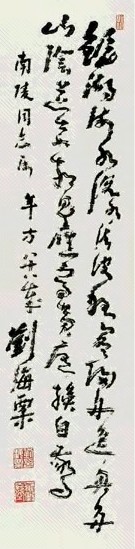 鏡湖流水漾清波狂客歸舟逸興多
山陰道士如相見應寫黃庭換白鵝
南陵同志屬 年方 劉海粟